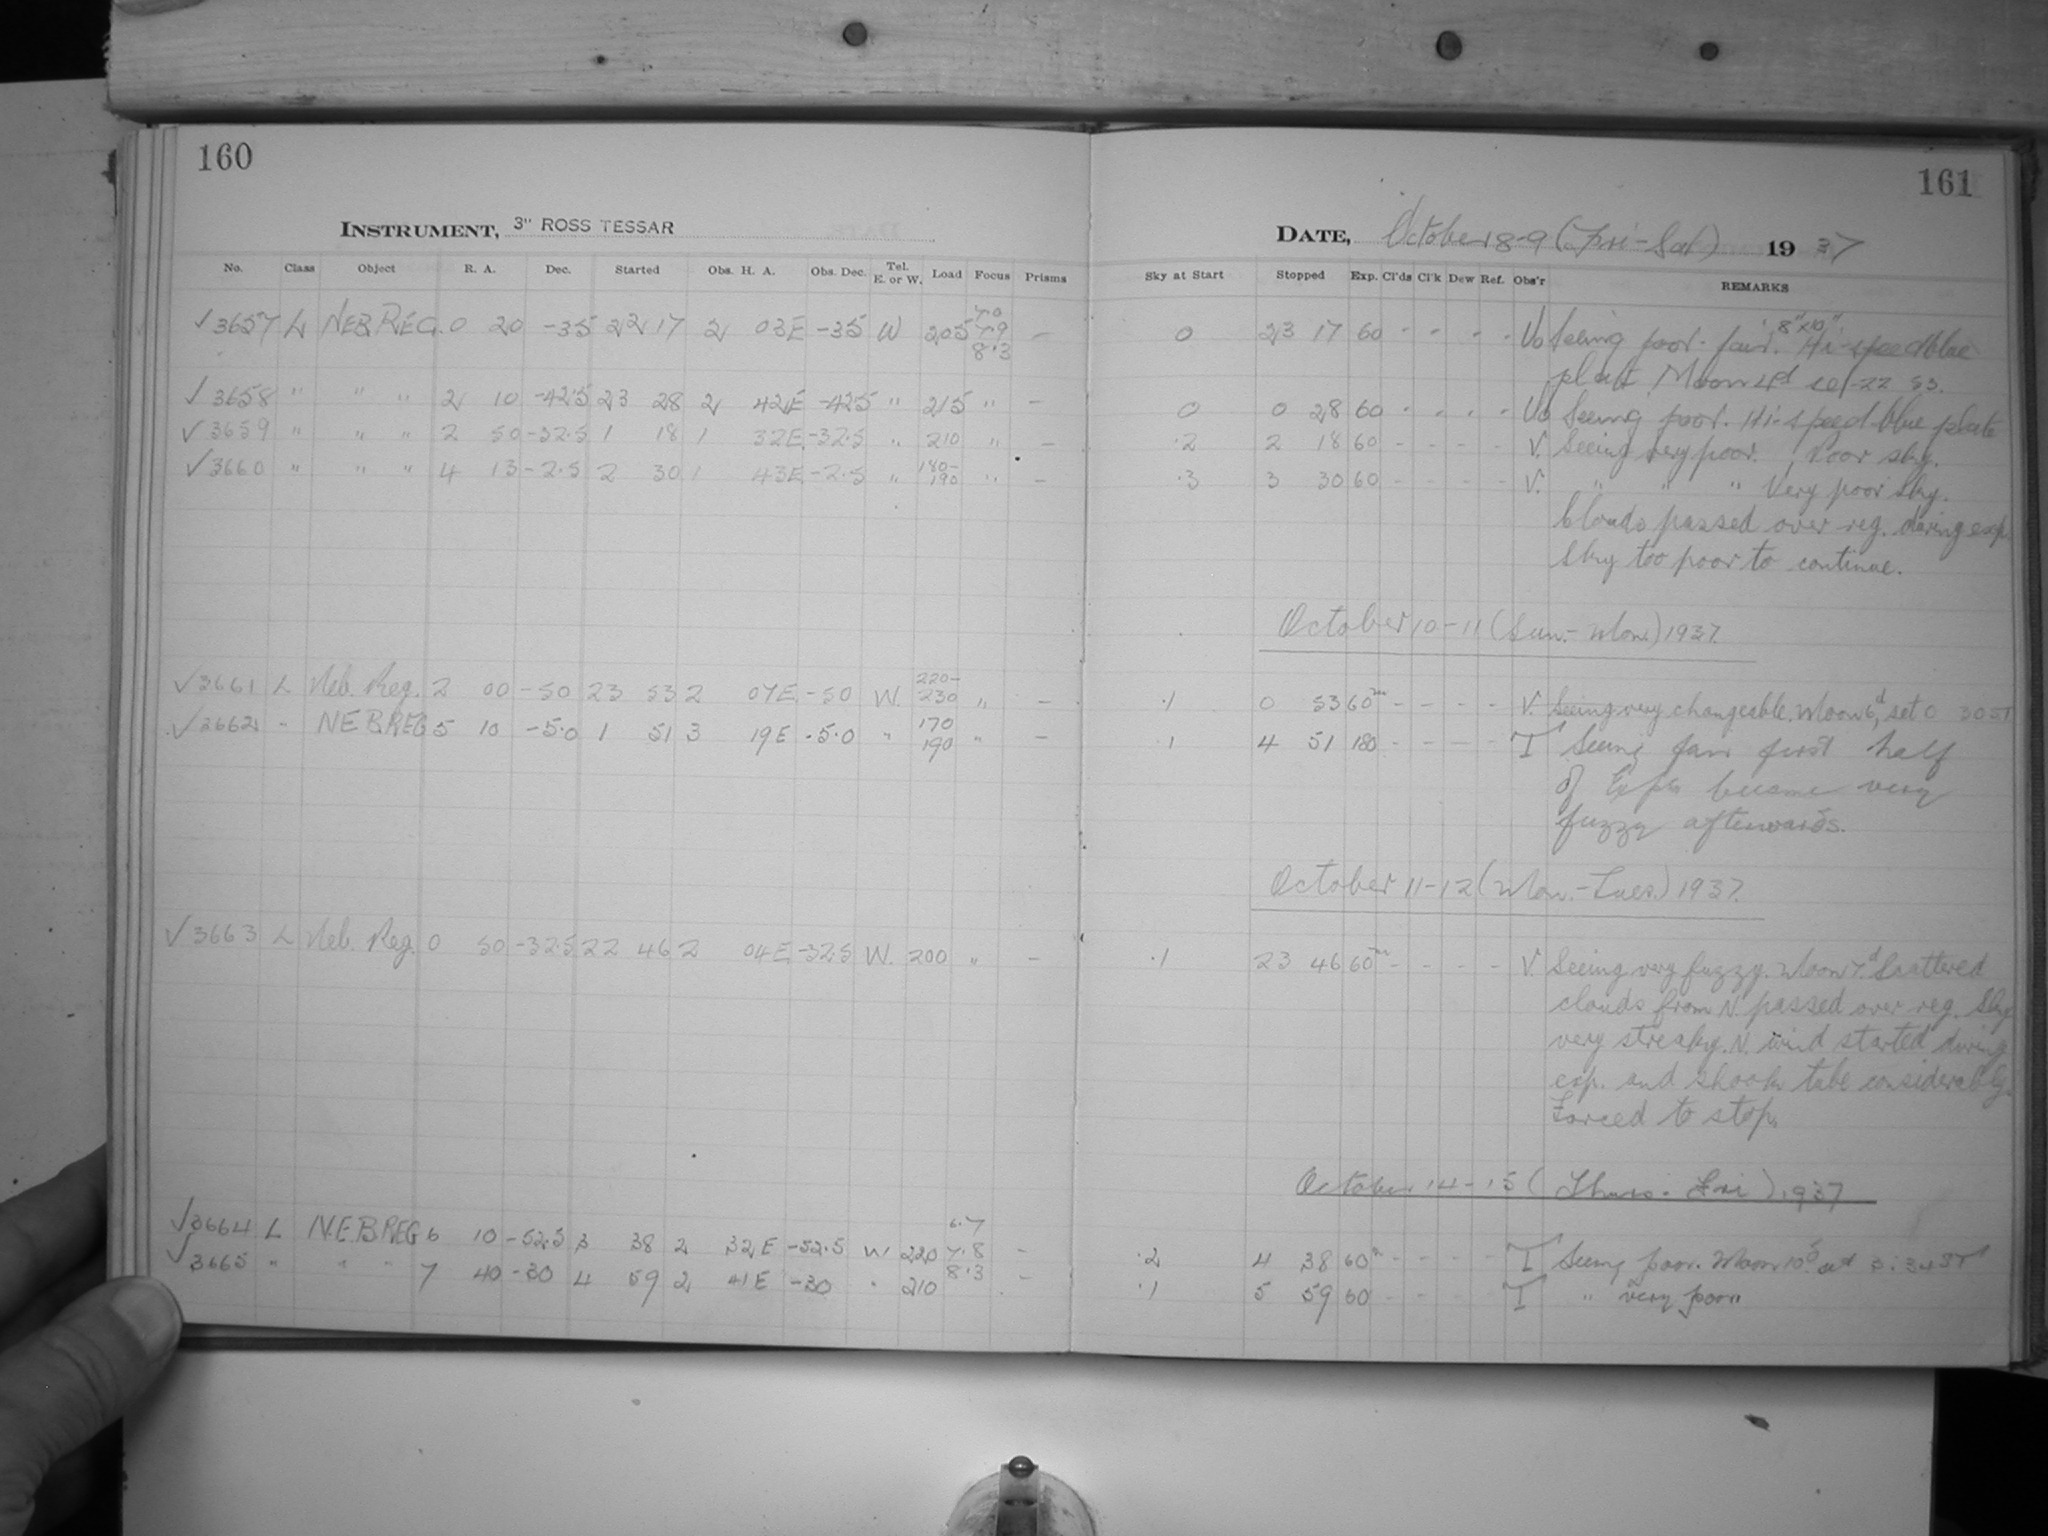 160
161
INSTRUMENT, 3" ROSS TESSAR
DATE, October 8-9 (Fri-Sat) 1937
No. Class Object R. A. Dec. Started Obs. H. A. Obs. Dec. Tel. E. or W. Load Focus Prisms Sky at Start Stopped Exp. Cl'ds Cl'k Dew Ref. Obs'r REMARKS
✓ 3657 L NEB REG. 0 20 -35 22 17 2 03E -35 W 205 7.0 7.9 8.3 - 0 23 17 60 - - - - Vo Seeing poor-fair. 8"x10" Hi-speed blue
plate Moon 4d
✓ 3658 " " " 2 10 -42.5 23 28 2 42E -42.5 " 215 " - 0 0 28 60 - - - - Vo Seeing poor. Hi-speed blue plate
✓ 3659 " " " 2 50 -32.5 1 18 1 32E -32.5 " 210 " - .2 2 18 60 - - - - V. Seeing very poor. Poor sky.
✓ 3660 " " " 4 13 -2.5 2 30 1 43E -2.5 " 180-190 " - .3 3 30 60 - - - - V. " " " Very poor sky.
Clouds passed over reg. during exp.
Sky too poor to continue.
October 10-11 (Sun.-Mon.) 1937.
✓ 3661 L Neb. Reg. 2 00 -50 23 53 2 07E -50 W. 220-230 " - .1 0 53 60m - - - - V. Seeing very changeable. Moon 6d, set 0 30 ST
✓ 3662 " NEB REG 5 10 -5.0 1 51 3 19E -5.0 " 170 190 " - .1 4 51 180 - - - - T Seeing fair first half
of Exp. became very
fuzzy afterwards.
October 11-12 (Mon.-Tues.) 1937.
✓ 3663 L Neb. Reg. 0 50 -32.5 22 46 2 04E -32.5 W. 200 " - .1 23 46 60m - - - - V. Seeing very fuzzy. Moon 7d. Scattered
clouds from N. passed over reg. Sky
very streaky. N. wind started during
exp. and shook tube considerably.
Forced to stop.
October 14-15 (Thurs.-Fri) 1937
✓ 3664 L N.E.B REG 6 10 -52.5 3 38 2 32E -52.5 W 220 6.7 7.8 8.3 - .2 4 38 60m - - - - T Seeing poor. Moon 10d set 3:34 ST
✓ 3665 " " " 7 40 -30 4 59 2 41E -30 " 210 - .1 5 59 60 - - - - T " very poor